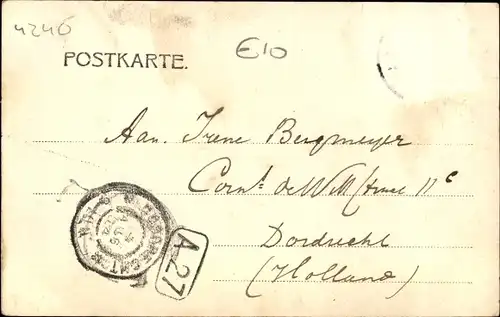 4246
E10
POSTKARTE.
Aan Irene Bergmeyer
Corn^t. de Witt straat 11^c
Dordrecht
(Holland)
DORDRECHT
A27